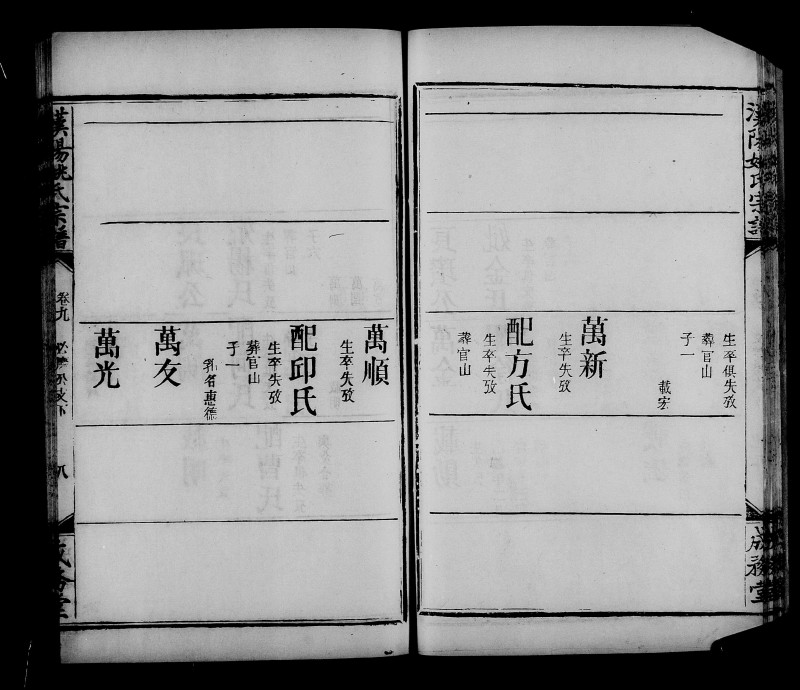 漢陽姚氏宗譜
成務堂
生卒俱失攷
葬官山
子一
載宏
萬新
生卒失攷
配方氏
生卒失攷
葬官山
萬順
生卒失攷
配邱氏
生卒失攷
葬官山
子一
乳名惠德
萬友
萬光
漢陽姚氏宗譜
卷九
八
成務堂